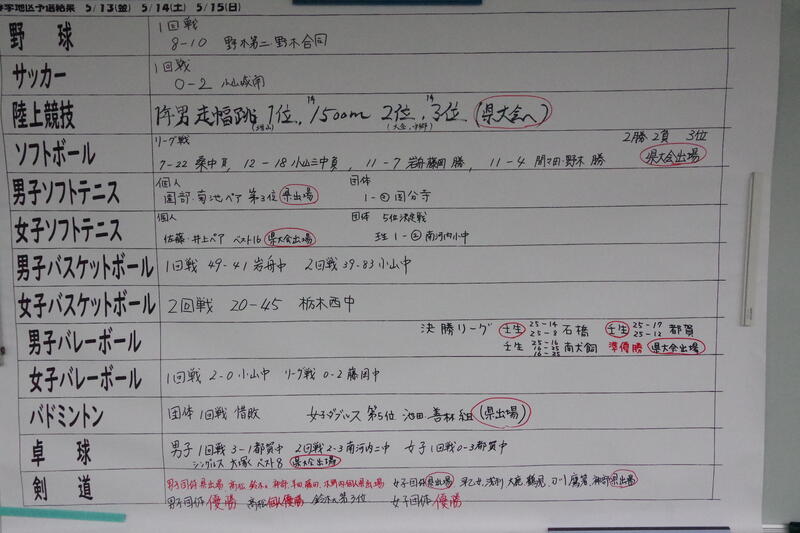 季地区予選結果 5/13(金) 5/14(土) 5/15(日)
野球
1回戦
8-10 野木第二・野木合同
サッカー
1回戦
0-2 小山城南
陸上競技
走幅跳 1位, 1500m 2位, 3位 県大会へ
ソフトボール
リーグ戦 2勝2負 3位
7-22 桑中負, 12-18 小山三中負, 11-7 岩舟藤岡 勝, 11-4 間々田・野木 勝 県大会出場
男子ソフトテニス
個人 団体
園部・菊池ペア 第3位 県出場 1-② 国分寺
女子ソフトテニス
個人 団体 5位決定戦
佐藤・井上ペア ベスト16 県大会出場 壬生 1-② 南河内小中
男子バスケットボール
1回戦 49-41 岩舟中 2回戦 39-83 小山中
女子バスケットボール
2回戦 20-45 栃木西中
男子バレーボール
決勝リーグ 壬生 25-14 25-8 石橋 壬生 25-17 25-12 都賀
壬生 25-16 16-25 16-25 南犬飼 準優勝 県大会出場
女子バレーボール
1回戦 2-0 小山中 リーグ戦 0-2 藤岡中
バドミントン
団体 1回戦 惜敗 女子ダブルス 第5位 池田・善林組 県出場
卓球
男子 1回戦 3-1 都賀中 2回戦 2-3 南河内二中 女子 1回戦 0-3 都賀中
シングルス 大塚 ベスト8 県大会出場
剣道
男子団体県出場 高松 鈴木 個人県出場 女子団体県出場 早乙女, 浅利 大鹿 鶴見, 県出場
男子団体 優勝 高松 個人優勝 鈴木 第3位 女子団体 優勝